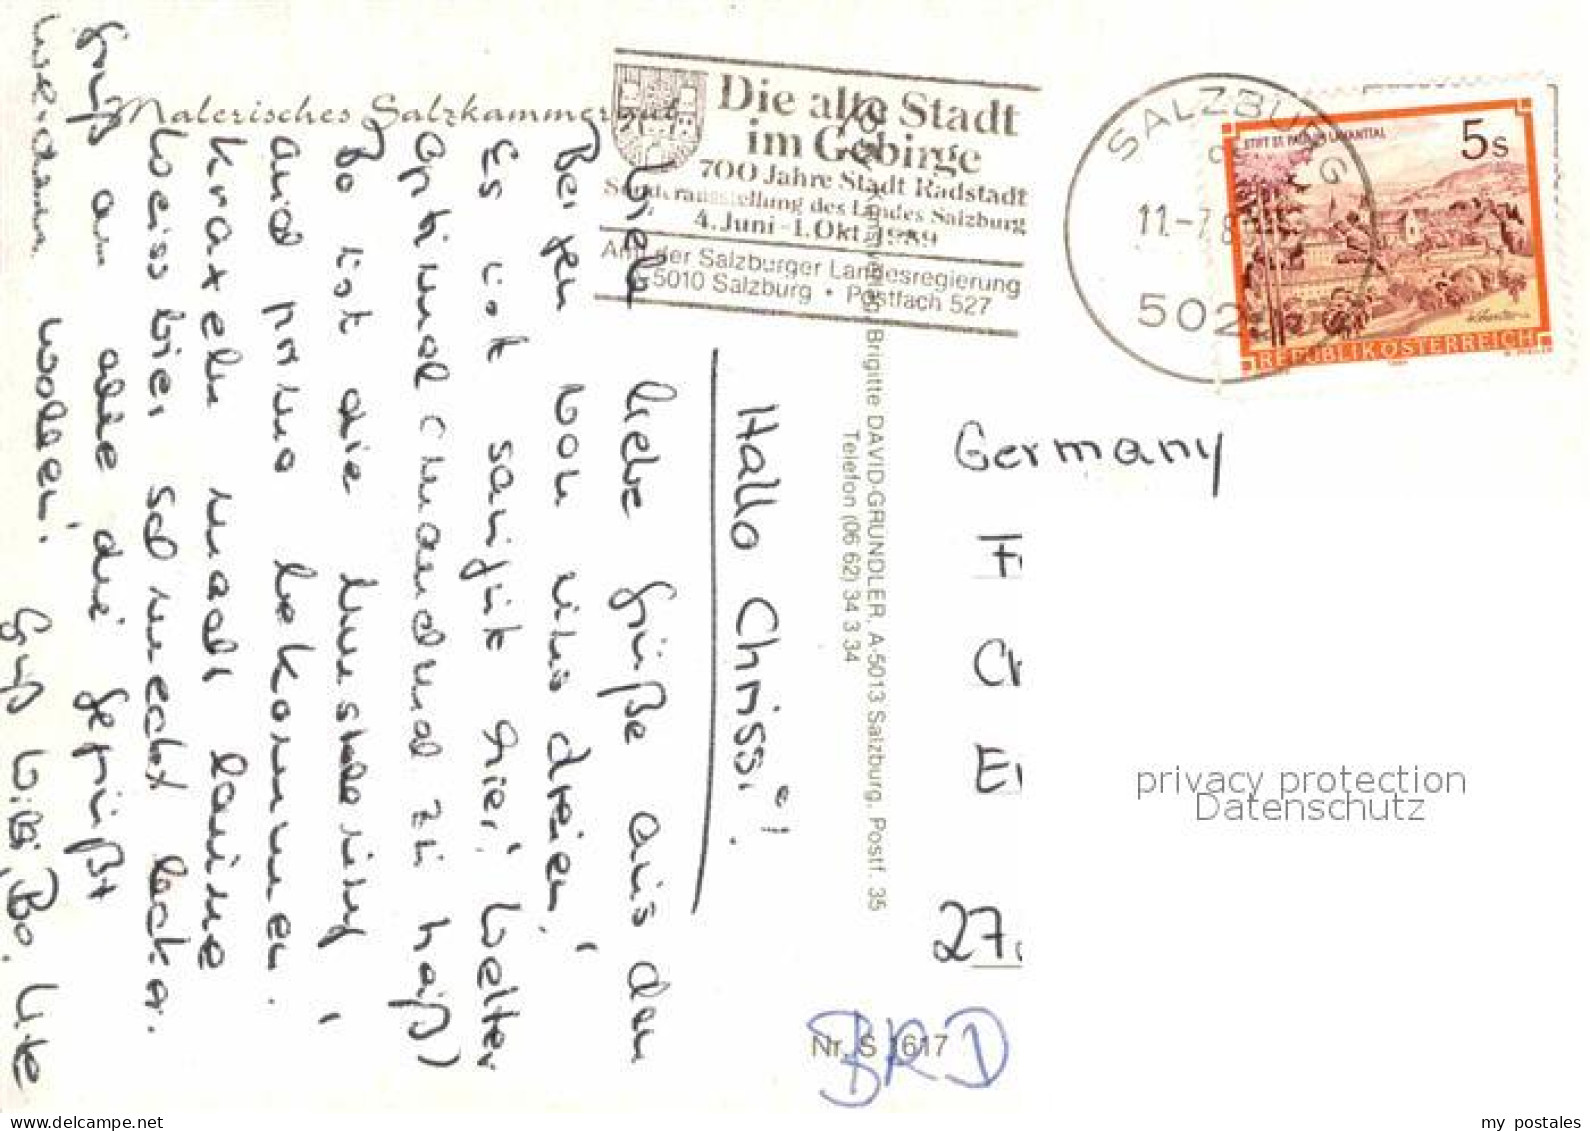 Malerisches Salzkammergut
Die alte Stadt
im Gebirge
700 Jahre Stadt Radstadt
Sonderausstellung des Landes Salzburg
4. Juni - 1. Okt. 1989
Amt der Salzburger Landesregierung
5010 Salzburg • Postfach 527
SALZBURG
11.-7.8
502
STIFT ST. PAUL IM LAVANTTAL
5S
REPUBLIK ÖSTERREICH
Hallo Chrissi!
Viele liebe Grüße aus den
Bergen von uns dreien!
Es ist sanft hier. Wetter
optimal (manchmal zu heiß)
Bo ist die
und prima bekommen.
Kraxeln macht laune
Weissbier schmeckt lecker.
Gruß an alle die gegrüßt
wollen.
Gruß Willi, Bo, Ute
Brigitte DAVID-GRUNDLER, A-5013 Salzburg, Postf. 35
Telefon (06 62) 34 3 34
Germany
27.
Nr. S 1617
BRD
privacy protection
Datenschutz
my postales